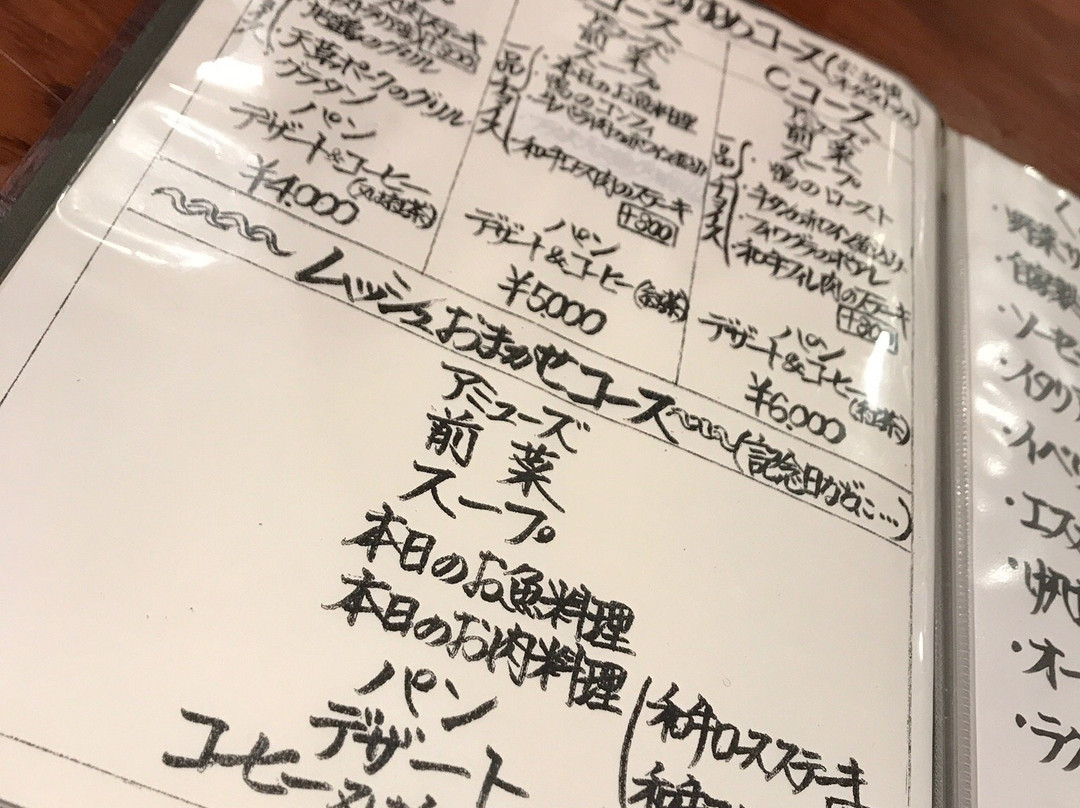 地鶏のグリル
天草ポークのグリル
グラタン
パン
デザート&コーヒー
¥4,000
前菜
スープ
一品チョイス
・本日のお魚料理
・鴨のコンフィ
・和牛ロース肉のステーキ
+800
パン
デザート&コーヒー(紅茶)
¥5000
おすすめコース
Cコース
アミューズ
前菜
スープ
一品チョイス
・鴨のロースト
・フォワグラのポワレ
・和牛フィレ肉のステーキ
パン
デザート&コーヒー(紅茶)
¥6,000
ムッシュおまかせコース
(記念日などに…)
アミューズ
前菜
スープ
本日のお魚料理
本日のお肉料理
和牛ロースステーキ
パン
デザート
コーヒー
・野菜
・自家製
・ソーセ
・イタリア
・イベリ
・エス
・オー
・ラタ